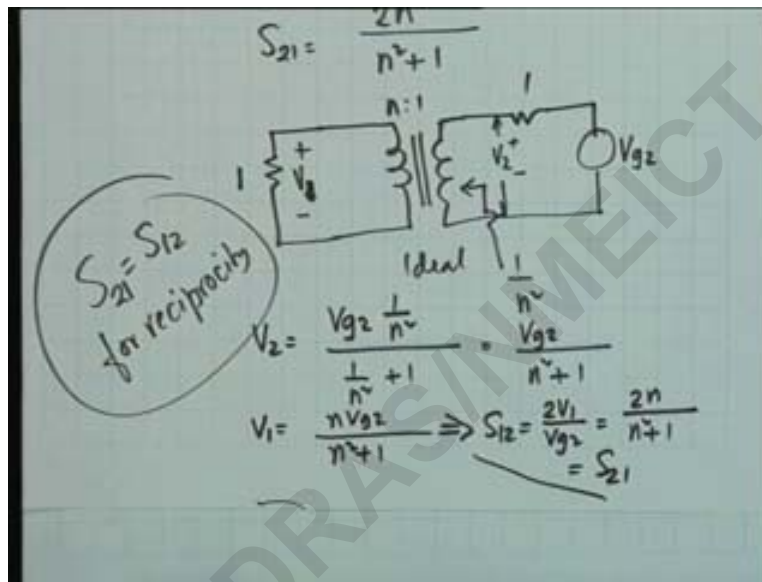 S21 = 2n / n²+1
n:1
1
1
+
V1
-
+
V2
-
Vg2
Ideal
1/n²
S21 = S12
for reciprocity
V2 = Vg2 1/n² / 1/n² + 1 = Vg2 / n²+1
V1 = nVg2 / n²+1 ⇒ S12 = 2V1 / Vg2 = 2n / n²+1
= S21
DRAS/NMEICT